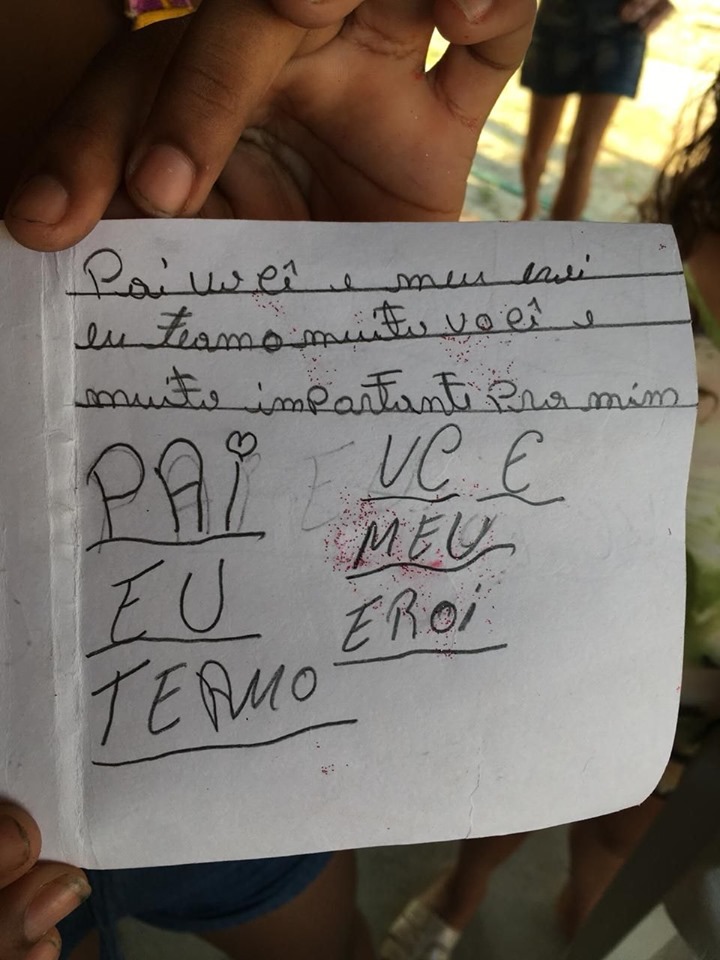 Pai você e meu eroi
eu teamo muito você e
muito importante pra mim
PAi
EU
TEAMO
VC E
MEU
EROi